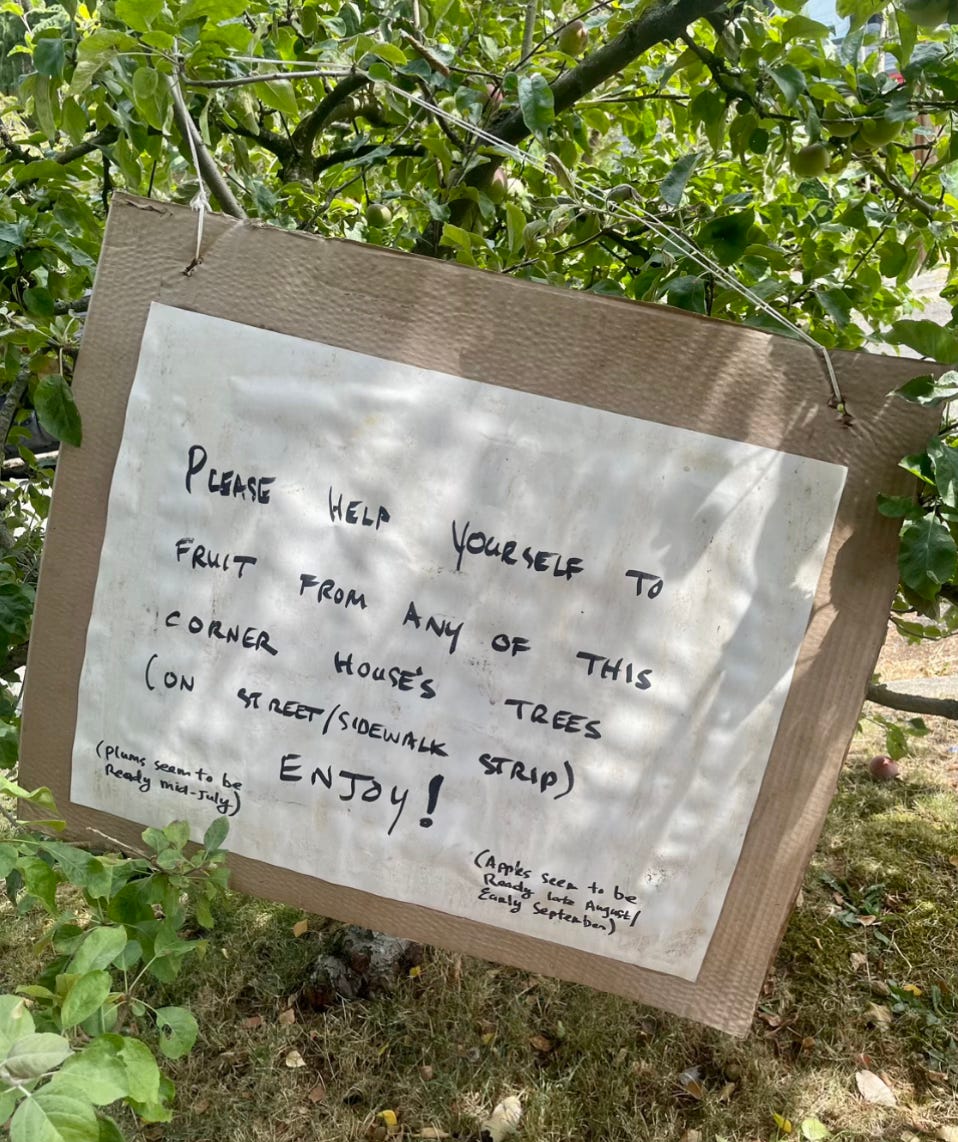 PLEASE HELP YOURSELF TO
FRUIT FROM ANY OF THIS
CORNER HOUSE'S TREES
(ON STREET/SIDEWALK STRIP)
ENJOY!
(plums seem to be
Ready mid-July)
(Apples seem to be
Ready late August/
Early September)